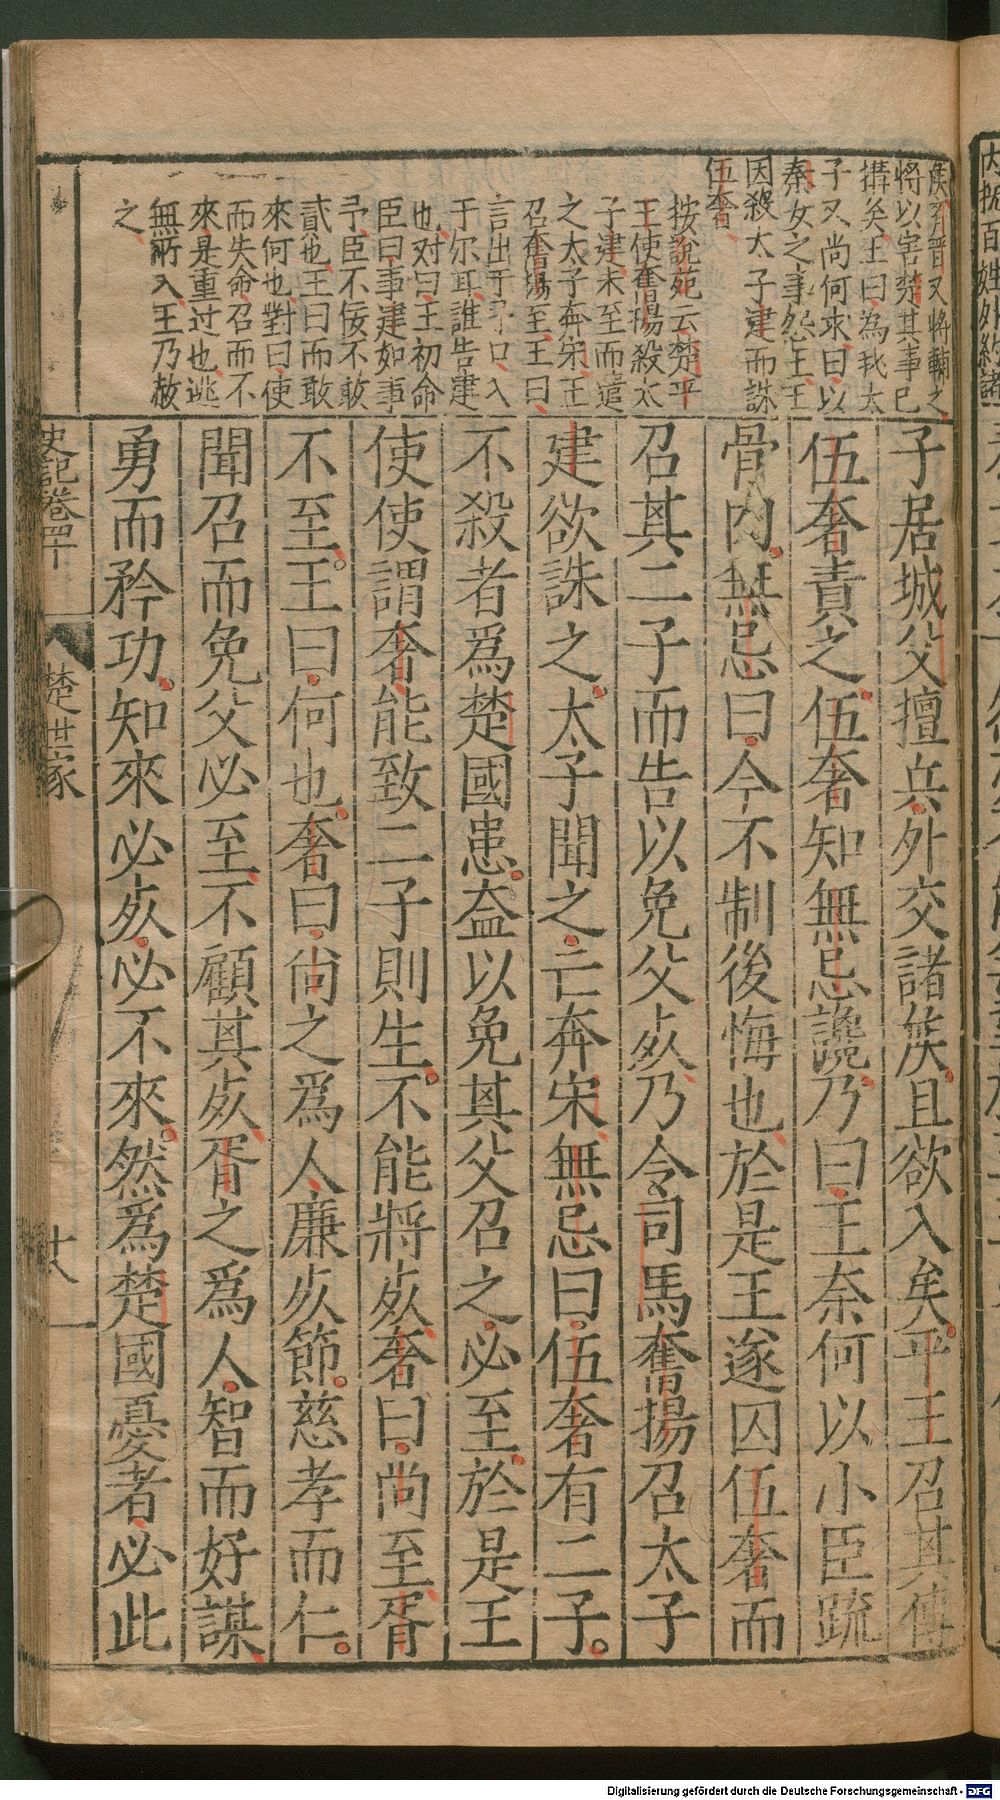 侯齊晉又將輔之
將以害楚其事已
搆矣王曰為我太
子又尚何求曰以
秦女之事怨王王
因殺太子建而誅
伍奢
按說苑云楚平
王使奮揚殺太
子建未至而遣
之太子奔宋王
召奮揚至王曰
言出于予口入
于尔耳誰告建
也对曰王初命
臣曰事建如事
予臣不佞不敢
貳也王曰而敢
來何也對曰使
而失命召而不
來是重过也逃
無所入王乃赦
之
子居城父擅兵外交諸侯且欲入矣平王召其傅
伍奢責之伍奢知無忌讒乃曰王奈何以小臣疏
骨肉無忌曰今不制後悔也於是王遂囚伍奢而
召其二子而告以免父死乃令司馬奮揚召太子
建欲誅之太子聞之亡奔宋無忌曰伍奢有二子
不殺者爲楚國患盍以免其父召之必至於是王
使使謂奢能致二子則生不能將死奢曰尚至胥
不至王曰何也奢曰尚之爲人廉死節慈孝而仁
聞召而免父必至不顧其死胥之爲人智而好謀
勇而矜功知來必死必不來然爲楚國憂者必此
史記卷四十 楚世家 十八
内撫百姓外約諸
Digitalisierung gefördert durch die Deutsche Forschungsgemeinschaft - DFG